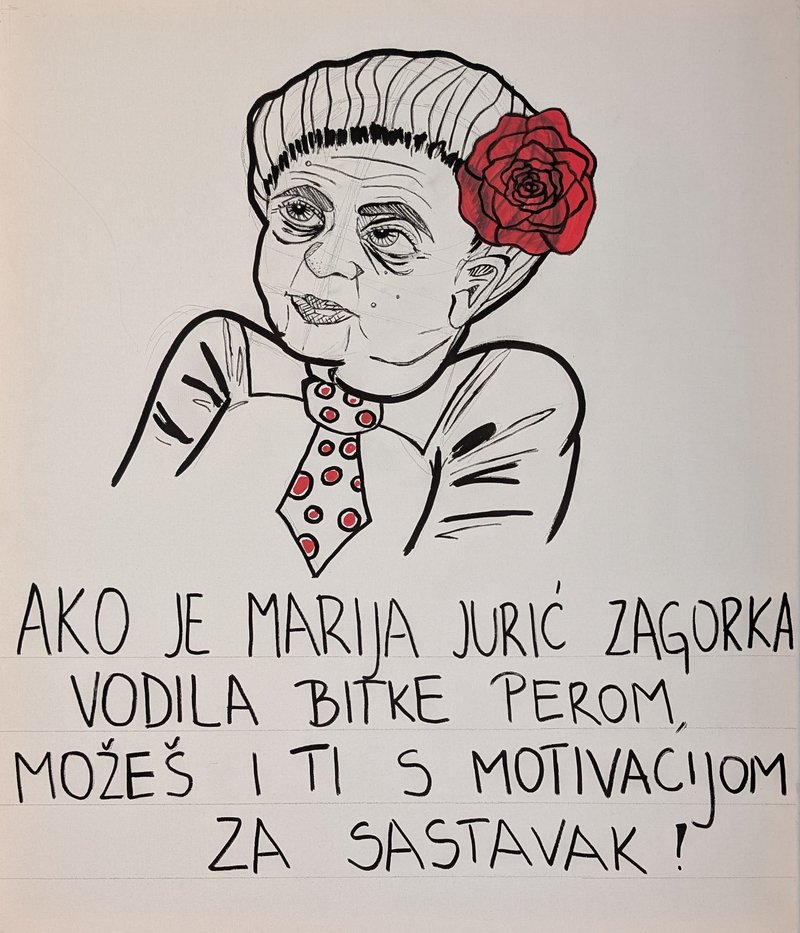 AKO JE MARIJA JURIĆ ZAGORKA
VODILA BITKE PEROM,
MOŽEŠ I TI S MOTIVACIJOM
ZA SASTAVAK!